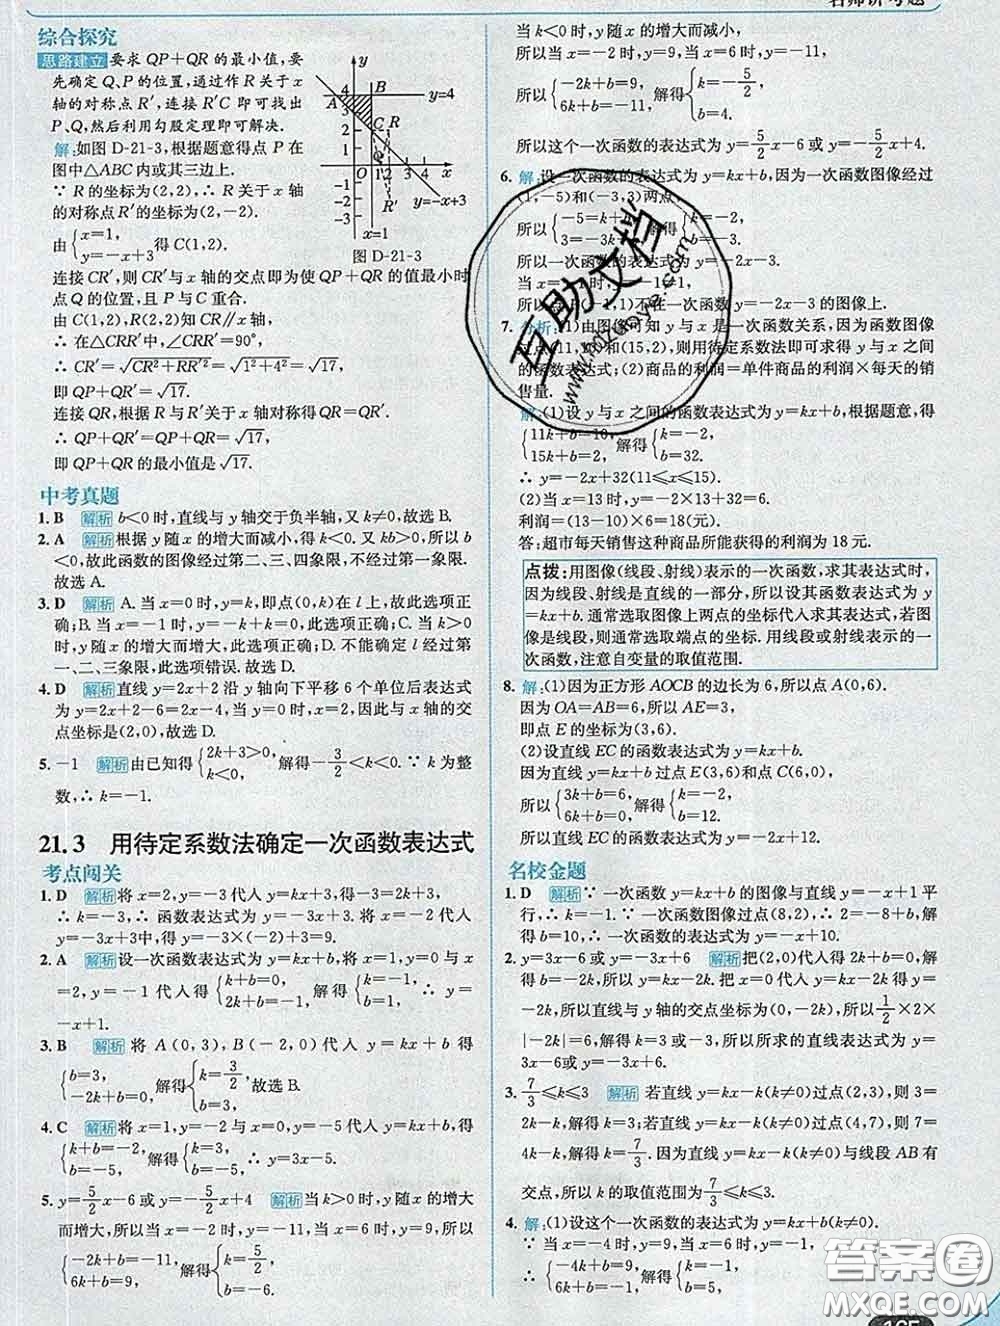 综合探究
思路建立 要求QP+QR的最小值,要
先确定Q、P的位置,通过作R关于x
轴的对称点R′,连接R′C即可找出
P、Q,然后利用勾股定理即可解决.
解:如图D-21-3,根据题意得点P在
图中△ABC内或其三边上.
∵R的坐标为(2,2),∴R关于x轴
的对称点R′的坐标为(2,-2).
由{x=1, y=-x+3 得C(1,2).
图D-21-3
y=4
y=-x+3
x=1
连接CR′,则CR′与x轴的交点即为使QP+QR的值最小时
点Q的位置,且P与C重合.
由C(1,2),R(2,2)知CR∥x轴,
∴在△CRR′中,∠CRR′=90°,
∴CR′=√(CR²+RR′²)=√(1²+4²)=√17,
即QP+QR′=√17.
连接QR,根据R与R′关于x轴对称得QR=QR′.
∴QP+QR′=QP+QR=√17,
即QP+QR的最小值是√17.
中考真题
1. B 解析 b<0时,直线与y轴交于负半轴,又k≠0,故选B.
2. A 解析 根据y随x的增大而减小,得k<0.又kb>0,所以b
<0,故此函数的图像经过第二、三、四象限,不经过第一象限.
故选A.
3. D 解析 A.当x=0时,y=k,即点(0,k)在l上,故此选项正
确;B.当x=-1时,y=-k+k=0,此选项正确;C.当k>0
时,y随x的增大而增大,此选项正确;D.不能确定l经过第
一、二、三象限,此选项错误.故选D.
4. D 解析 直线y=2x+2沿y轴向下平移6个单位后表达式
为y=2x+2-6=2x-4,当y=0时,x=2,因此与x轴的交
点坐标是(2,0),故选D.
5. -1 解析 由已知得{2k+3>0, k<0, 解得-3/2<k<0.∵k为整
数,∴k=-1.
21.3 用待定系数法确定一次函数表达式
考点闯关
1. D 解析 将x=2,y=-3代人y=kx+3,得-3=2k+3,
∴k=-3,∴函数表达式为y=-3x+3.将x=-2代人
y=-3x+3中,得y=-3×(-2)+3=9.故选D.
2. A 解析 设一次函数表达式为y=kx+b,将x=1,y=0与
x=2,y=-1代人得{k+b=0, 2k+b=-1, 解得{k=-1, b=1. ∴y=
-x+1.
3. B 解析 将A(0,3),B(-2,0)代人y=kx+b得
{b=3, -2k+b=0, 解得{k=3/2, b=3, 故选B.
4. C 解析 将x=1,y=-2与x=0,y=-5代人y=kx+b,得
{k+b=-2, b=-5, 解得{k=3, b=-5, ∴y=3x-5.
5. y=5/2x-6或y=-5/2x+4 解析 当k>0时,y随x的增大
而增大,所以当x=-2时,y=-11,当x=6时,y=9,所以
{-2k+b=-11, 6k+b=9, 解得{k=5/2, b=-6.
当k<0时,y随x的增大而减小,
所以当x=-2时,y=9,当x=6时,y=-11,
所以{-2k+b=9, 6k+b=-11, 解得{k=-5/2, b=4.
所以这个一次函数的表达式为y=5/2x-6或y=-5/2x+4.
6. 解:设一次函数的表达式为y=kx+b,因为一次函数图像经过
(1,-5)和(-3,3)两点,
{-5=k+b, 3=-3k+b, 解得{k=-2, b=-3.
所以一次函数的表达式为y=-2x-3.
当x=-1时,y=-1≠1,
所以点(-1,1)不在一次函数y=-2x-3的图像上.
7. 分析:(1)由图像可知y与x是一次函数关系,因为函数图像
过点(11,10)和(15,2),则用待定系数法即可求得y与x之间
的函数表达式;(2)商品的利润=单件商品的利润×每天的销
售量.
解:(1)设y与x之间的函数表达式为y=kx+b,根据题意,得
{11k+b=10, 15k+b=2, 解得{k=-2, b=32.
∴y=-2x+32(11≤x≤15).
(2)当x=13时,y=-2×13+32=6.
利润=(13-10)×6=18(元).
答:超市每天销售这种商品所能获得的利润为18元.
点拨:用图像(线段、射线)表示的一次函数,求其表达式时,
因为线段、射线是直线的一部分,所以设其函数表达式为y
=kx+b.通常选取图像上两点的坐标代人求其表达式,若图
像是线段,则通常选取端点的坐标.用线段或射线表示的一
次函数,注意自变量的取值范围.
8. 解:(1)因为正方形AOCB的边长为6,所以点A(0,6).
因为OA=AB=6,所以AE=3,
即点E的坐标为(3,6).
(2)设直线EC的函数表达式为y=kx+b.
因为直线y=kx+b过点E(3,6)和点C(6,0),
所以{3k+b=6, 6k+b=0, 解得{k=-2, b=12.
所以直线EC的函数表达式为y=-2x+12.
名校金题
1. D 解析 ∵一次函数y=kx+b的图像与直线y=-x+1平
行,∴k=-1.∵一次函数图像过点(8,2),∴2=-8+b,解
得b=10,∴一次函数的表达式为y=-x+10.
2. y=3x-6或y=-3x+6 解析 把(2,0)代人得2k+b=0,解
得b=-2k,所以y=kx-2k.把x=0代人得y=kx-2k得y=
-2k,所以直线与y轴的交点坐标为(0,-2k),所以1/2×2×
|-2k|=6,解得k=3或-3,所以所求的直线表达式为y=
3x-6或y=-3x+6.
3. 7/3≤k≤3 解析 若直线y=kx-k(k≠0)过点(2,3),则3=
2k-k,解得k=3;若直线y=kx-k(k≠0)过点(4,7),则7=
4k-k,解得k=7/3.因为直线y=kx-k(k≠0)与线段AB有
交点,所以k的取值范围为7/3≤k≤3.
4. 解:(1)设这个一次函数的表达式为y=kx+b(k≠0).
∵当x=-4时,y=9,当x=6时,y=-1,
∴{-4k+b=9, 6k+b=-1, 解得{k=-1, b=5.
互助文档
www.hdzuoye.com
答案圈
MXQE.COM